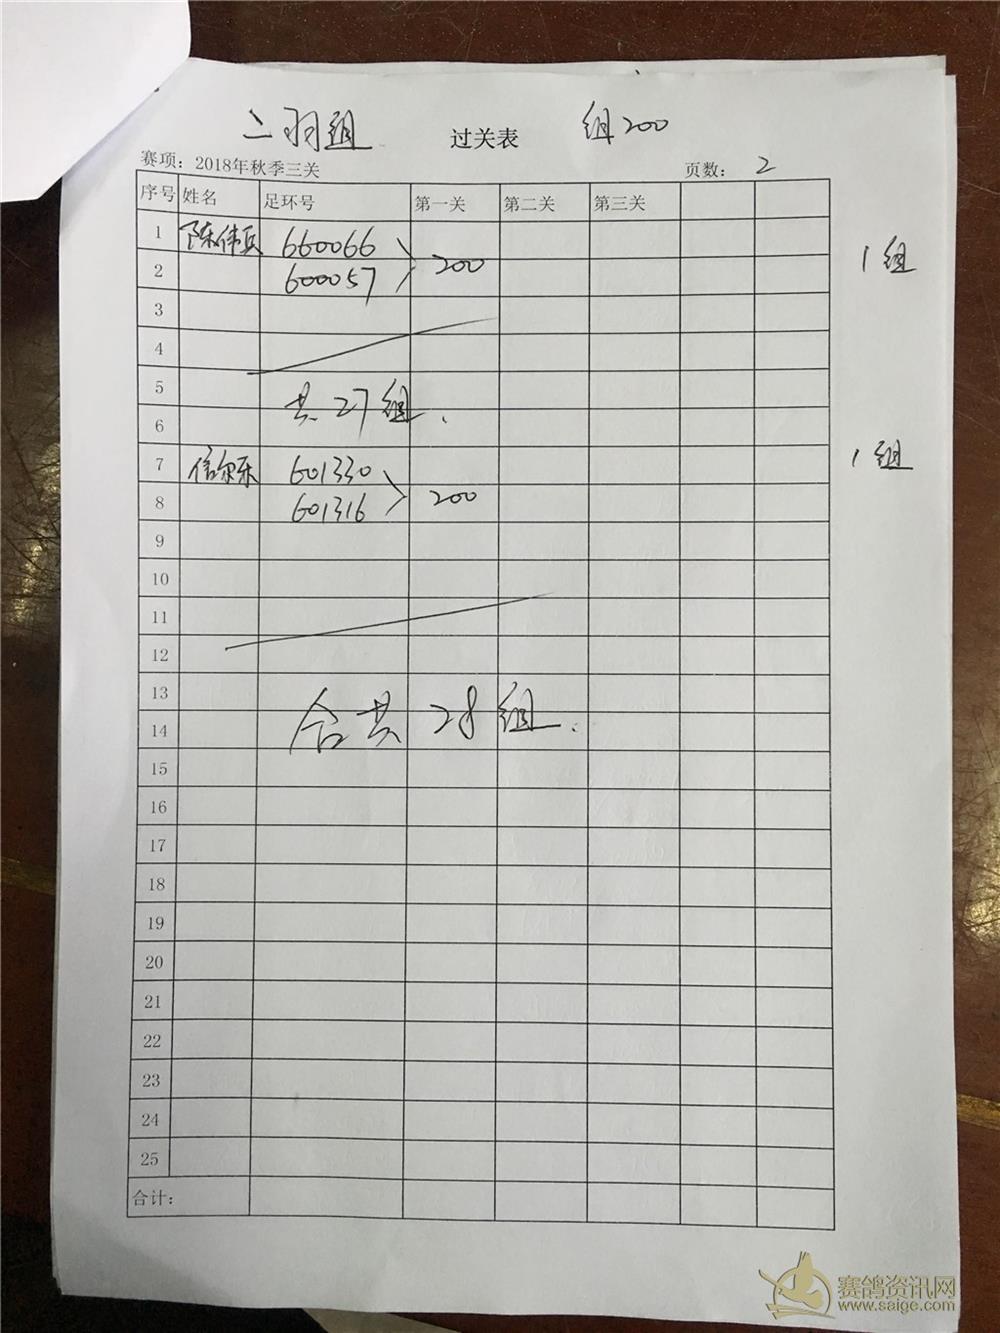 二羽组 过关表 组200
赛项：2018年秋季三关 页数： 2
序号 姓名 足环号 第一关 第二关 第三关
1 陈伟兵 660066
200 1组
2 600057
3
4
5
共27组.
6
7 信尔乐 601330 1组
8 601316 200
9
10
11
12
13
合共28组.
14
15
16
17
18
19
20
21
22
23
24
25
合计：
赛鸽资讯网
www.saige.com